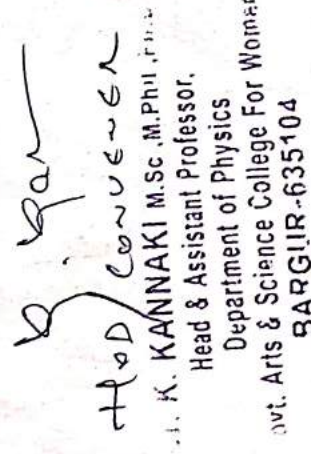 HOD/CONVENER
K. KANNAKI M.Sc.,M.Phil.,
Head & Assistant Professor,
Department of Physics
ovt. Arts & Science College For Women
BARGUR-635104